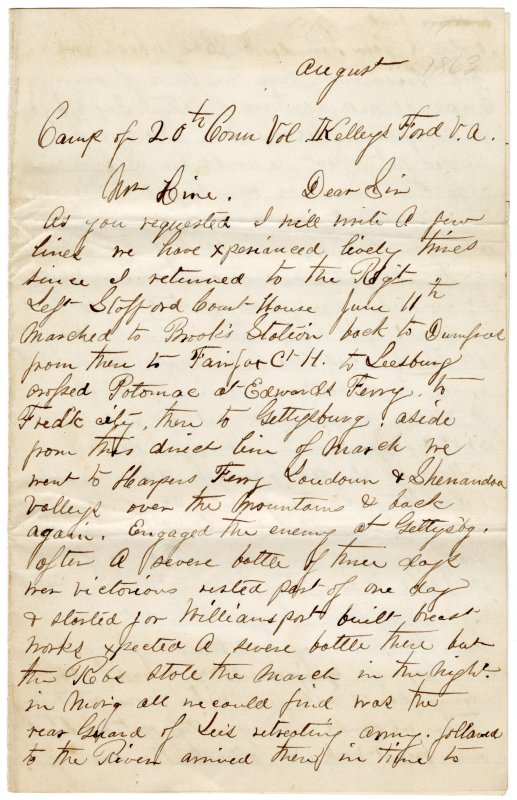 August 1863
Camp of 20th Conn Vol. Kelleys Ford V.A.
Mr Hine. Dear Sir
As you requested I will write A few
lines we have xperianced lively times
since I returned to the Regt
Left Stofford Court House June 11th
Marched to Brook's Station back to Dumfries
from then to Fairfax Ct H. to Leesburg
crossed Potomac at Edwards Ferry. to
Fredk city, then to Gettysburg. aside
from this direct line of March we
went to Harpers Ferry Loudoun & Shenandoa
Valleys over the mountains & back
again. Engaged the enemy at Gettysbg.
after A severe battle of three days
wer victorious rested part of one day
& started for Williamsport built breast
works xpected A severe battle there but
the Rebs stole the March in the night.
in Morng all we could find was the
rear Guard of Lee's retreating army. followed
to the River arrived there in time to